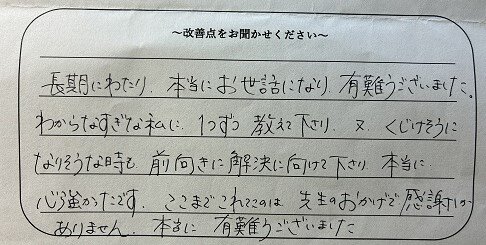 ～改善点をお聞かせください～
長期にわたり、本当にお世話になり、有難うございました。
わからなすぎな私に、1つずつ教えて下さり、又、くじけそうに
なりそうな時も前向きに解決に向けて下さり、本当に
心強かったです。ここまでこれてこのは、先生のおかげで感謝しか
ありません。本当に有難うございました